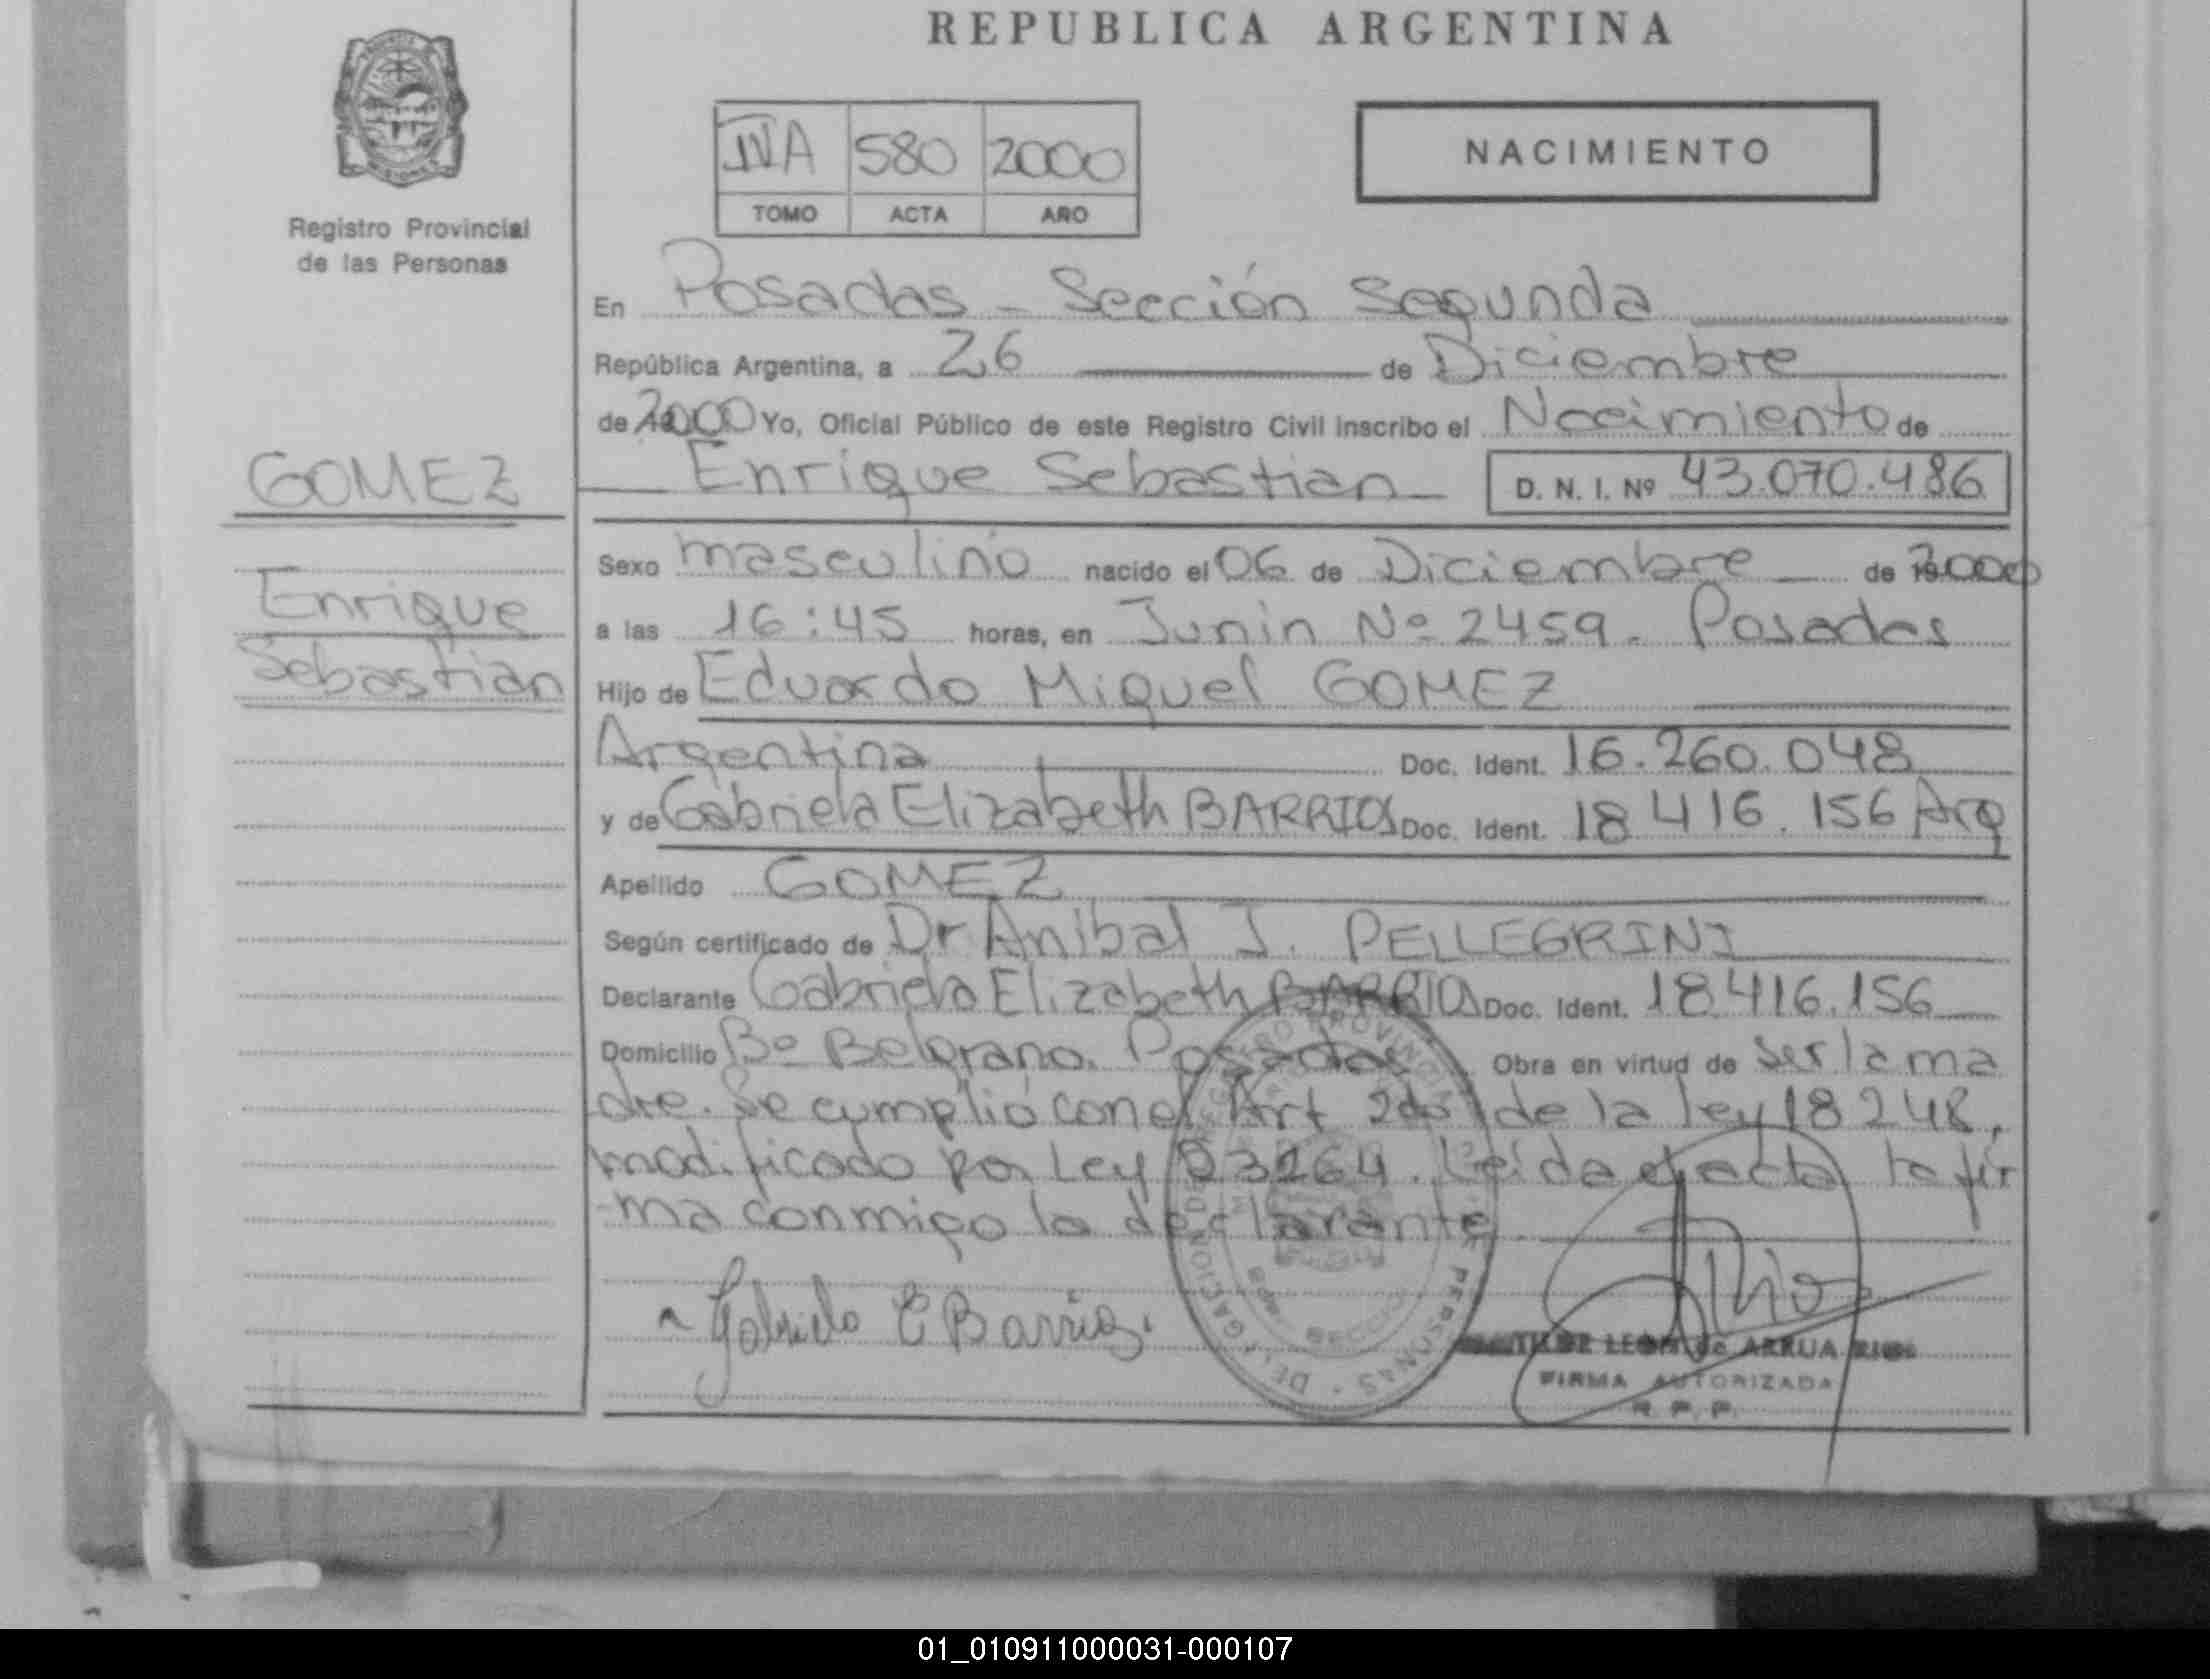 REPUBLICA ARGENTINA
NACIMIENTO
580 2000
TOMO ACTA AÑO
Registro Provincial
de las Personas
En Posadas - Sección Segunda
República Argentina, a 26 de Diciembre
de 2000 Yo, Oficial Público de este Registro Civil inscribo el Nacimiento de
GOMEZ
Enrique Sebastian D. N. I. Nº 43.070.486
Enrique
Sebastian
Sexo masculino nacido el 06 de Diciembre de 2000
a las 16:45 horas, en Junin Nº 2459. Posadas
Hijo de Eduardo Miguel GOMEZ
Argentina Doc. Ident. 16.260.048
y de Gabriela Elizabeth BARRIOS Doc. Ident. 18 416.156 Arg
Apellido GOMEZ
Según certificado de Dr Anibal J. PELLEGRINI
Declarante Gabriela Elizabeth BARRIOS Doc. Ident. 18.416.156
Domicilio Bº Belgrano. Posadas Obra en virtud de ser la ma
dre. Se cumplió con el Art 2do de la ley 18248,
modificado por Ley 23264. Leida el acta la fir
ma conmigo la declarante
Gabriela E Barrios
LEON de ARRUA RIOS
FIRMA AUTORIZADA
R. P. P.
01_010911000031-000107